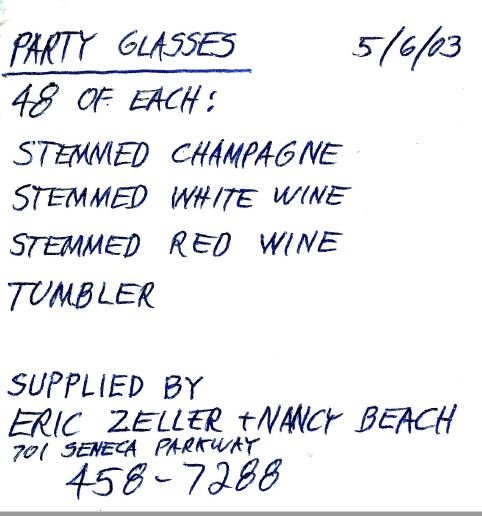 PARTY GLASSES 5/6/03
48 OF EACH:
STEMMED CHAMPAGNE
STEMMED WHITE WINE
STEMMED RED WINE
TUMBLER
SUPPLIED BY
ERIC ZELLER + NANCY BEACH
701 SENECA PARKWAY
458-7288